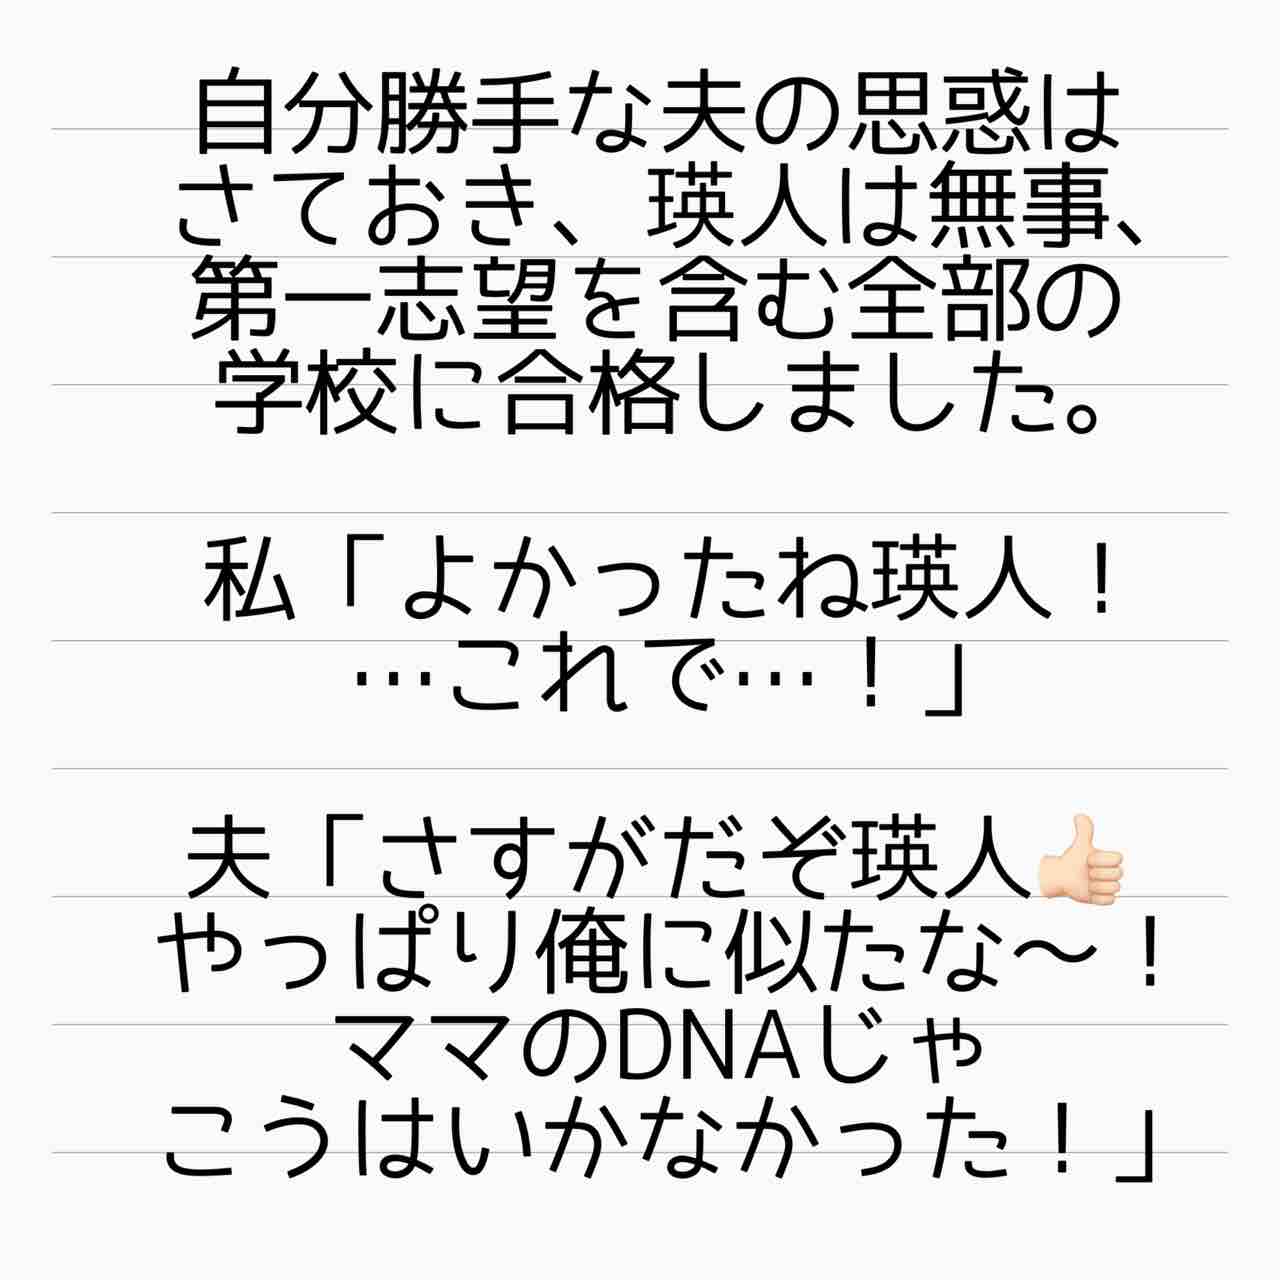 自分勝手な夫の思惑は
さておき、瑛人は無事、
第一志望を含む全部の
学校に合格しました。
私「よかったね瑛人！
…これで…！」
夫「さすがだぞ瑛人👍🏻
やっぱり俺に似たな〜！
ママのDNAじゃ
こうはいかなかった！」